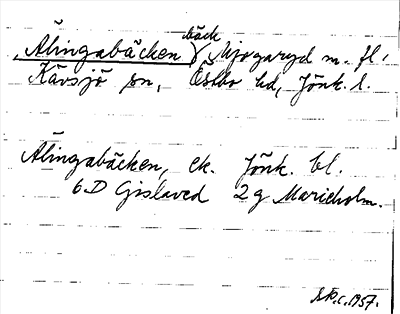 Älingabäcken bäck Mjogaryd m. fl.
Kävsjö sn, Östbo hd, Jönk. l.
Älingabäcken, ek. Jönk. bl.
6D Gislaved 2g Marieholm.
1957.